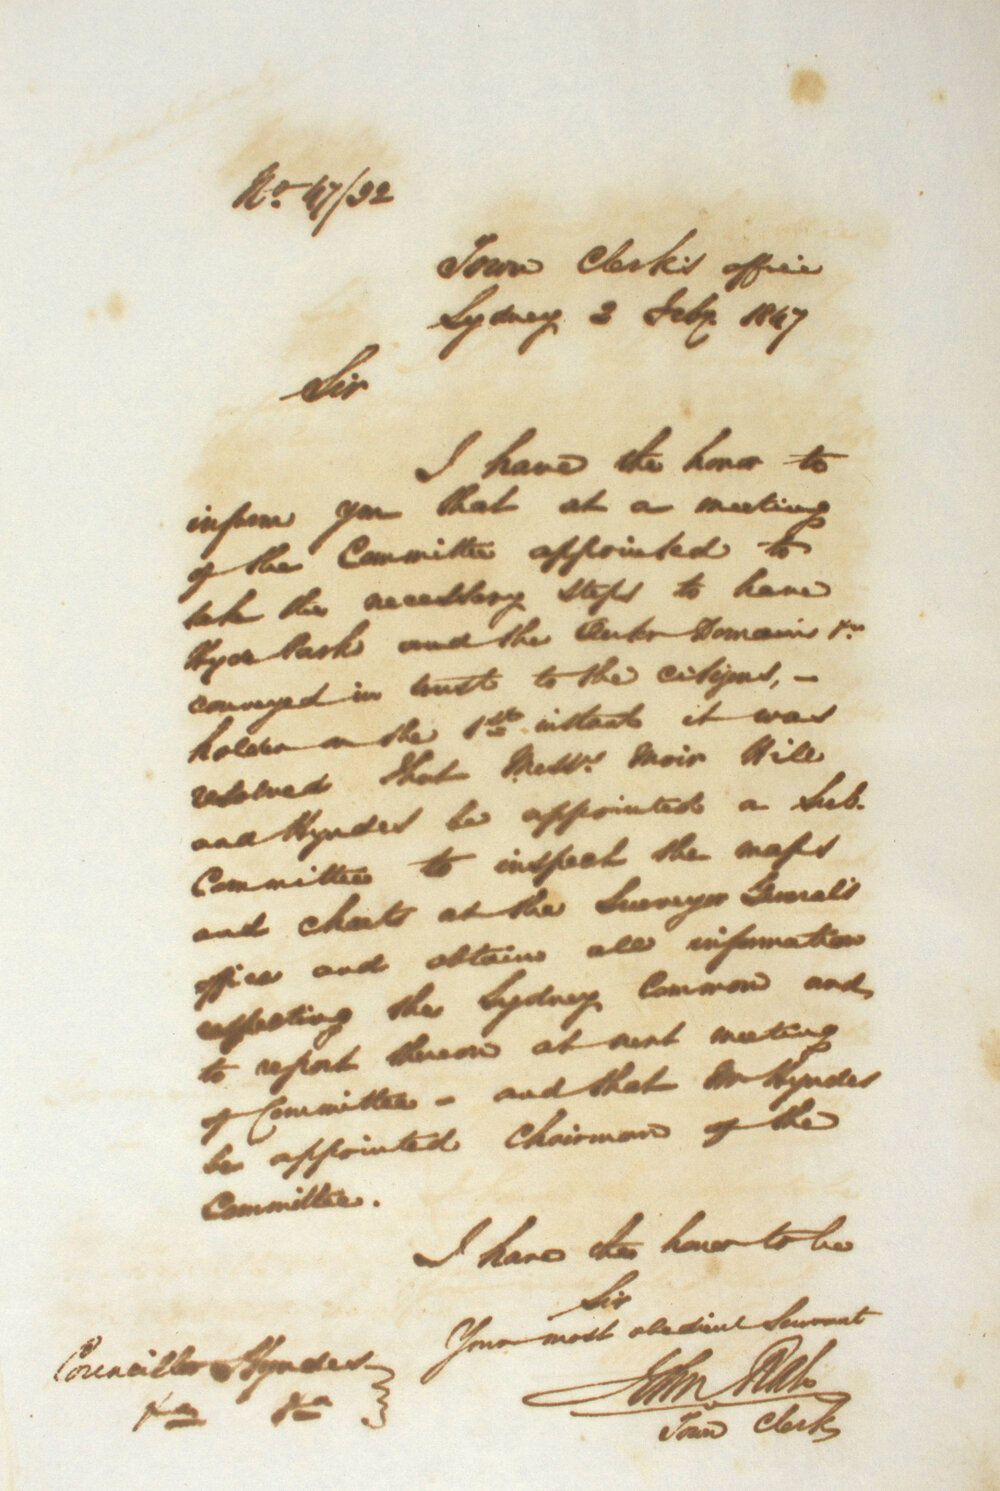 No. 47/32
Town Clerk's office
Sydney 2 Feby. 1847
Sir
I have the honor to
inform you that at a meeting
of the Committee appointed to
take the necessary steps to have
Hyde Park and the Outer Domains &c
conveyed in trust to the citizens, -
holden on the 1st. instant it was
resolved that Messrs Moir Hill
and Hyndes be appointed a Sub.
Committee to inspect the maps
and charts at the Surveyor General's
office and obtain all information
respecting the Sydney Common and
to report thereon at next meeting
of Committee - and that Mr Hyndes
be appointed Chairman of the
Committee.
I have the honor to be
Sir
Your most obedient Servant
John Rae
Town Clerk
Councillor Hyndes
&c &c